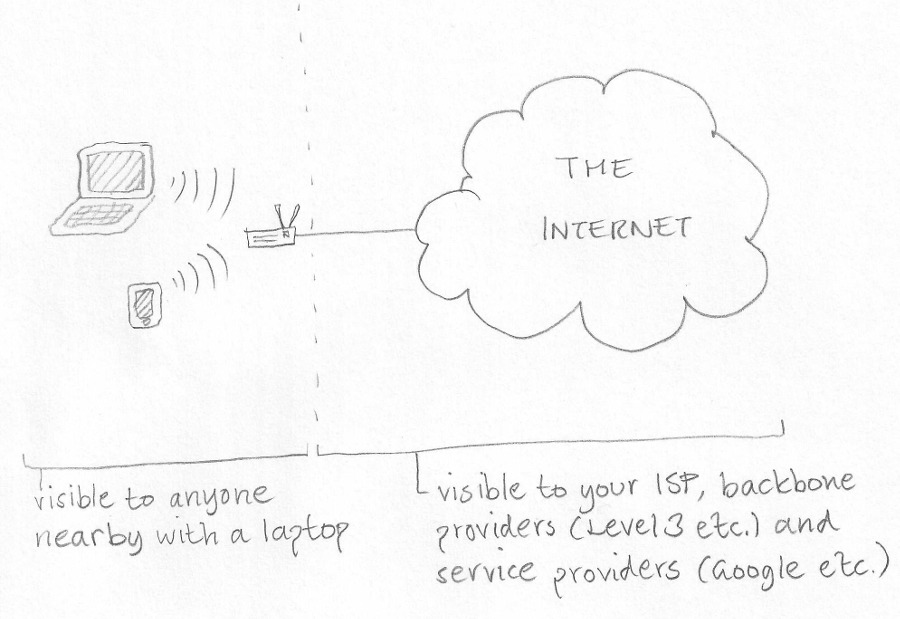 THE
INTERNET
visible to anyone
nearby with a laptop
visible to your ISP, backbone
providers (Level3 etc.) and
service providers (Google etc.)